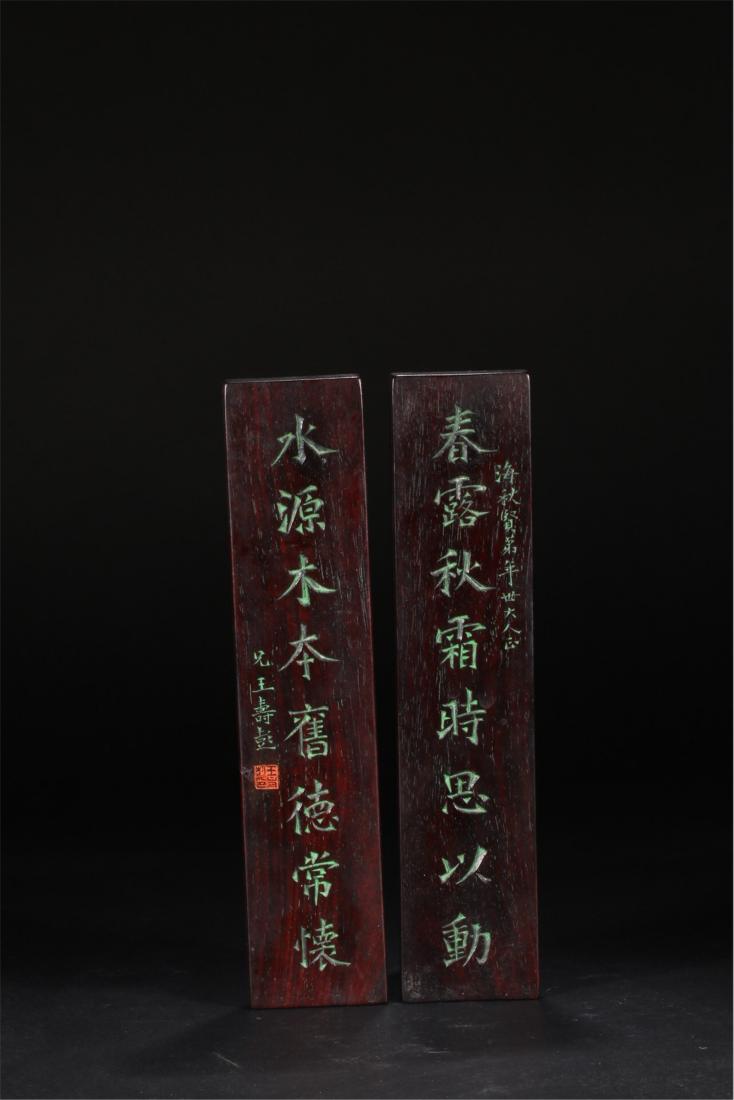 海秋賢弟年世大人正
春露秋霜時思以動
水源木本舊德常懷
兄王壽彭